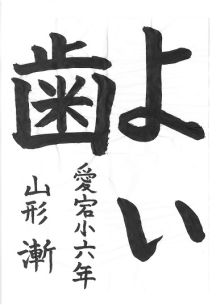 よい
歯
愛宕小六年
山形漸